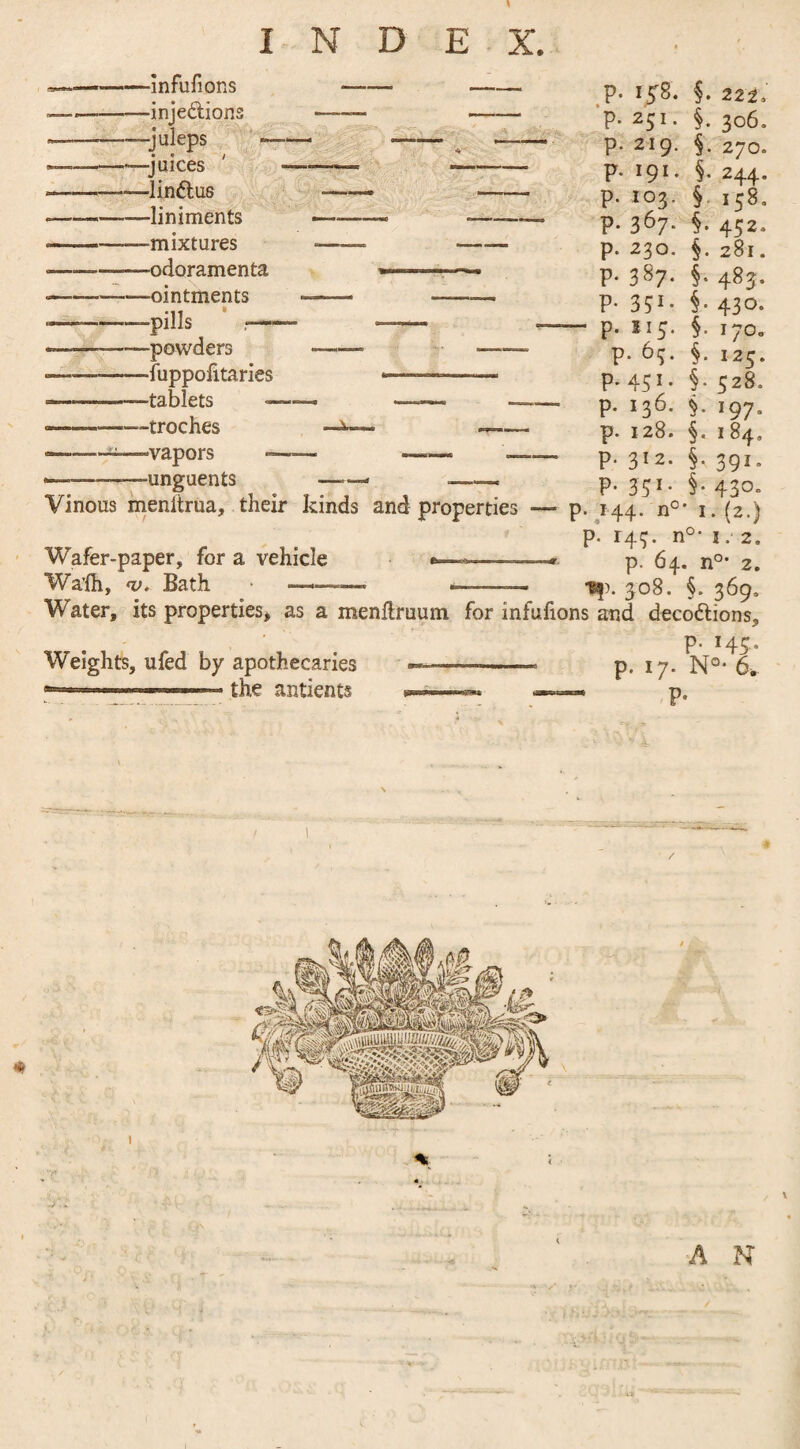 I N D E X.
————infuſions —— —— p. 158. §. 222.
————injections —— —— p. 251. §. 306.
————juleps —— —— —— p. 219. §. 270.
————juices —— —— p. 191. §. 244.
————linctus —— —— p. 103. § 158.
————liniments —— —— p. 367. §. 452.
————mixtures —— —— p. 230. §. 281.
————odoramenta —— p. 387. §. 483.
————ointments —— —— p. 351. §. 430.
————pills —— —— —— p. 115. §. 170.
————powders —— —— p. 65. §. 125.
————ſuppoſitaries —— p. 451. §. 528.
————tablets —— —— —— p. 136. §. 197.
————troches —— —— p. 128. §. 184.
————vapors —— —— —— p. 312. §. 391.
————unguents —— —— p. 351. §. 430.
Vinous menſtrua, their kinds and properties — p. 144. n°. 1. (2.)
p. 145. n°. 1. 2.
Wafer-paper, for a vehicle —— p. 64. n°. 2.
Waſh, v. Bath —— —— p. 308. §. 369.
Water, its properties, as a menſtruum for infuſions and decoctions,
p. 145.
Weights, uſed by apothecaries —— p. 17. N°. 6.
———— the antients —— —— p.
A N